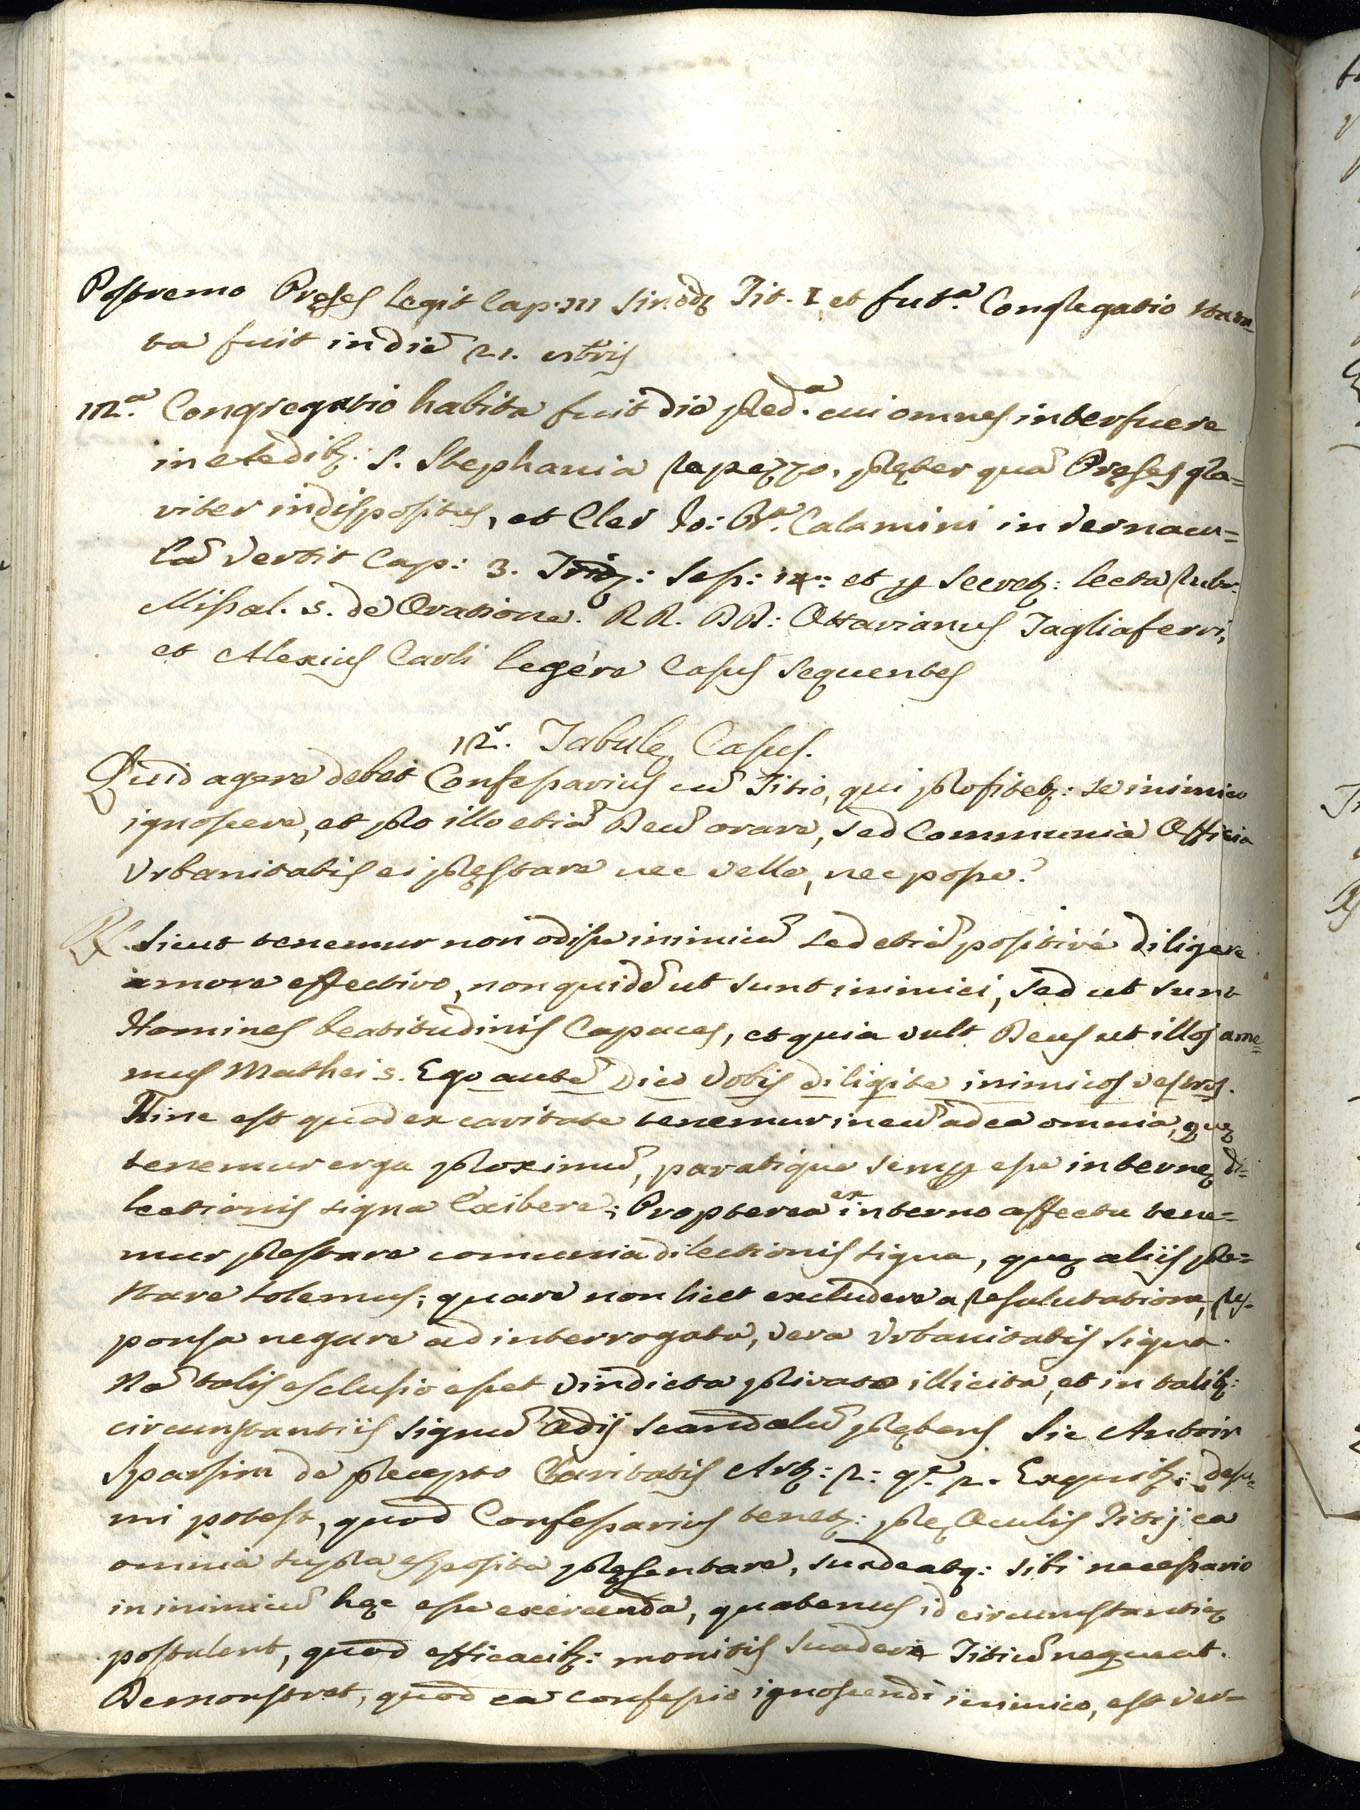 Postremo Pręses legit Cap: III Sinodę Tit. I et fut.ª Congregatio statu
ta fuit in die 21.
12.ª Congregatio habita fuit die pred.ª cui omnes interfuere
in ędib: S. Stephani a Rapezzo, pręter quā Pręses gra=
viter indispositus, et Cler Jo: Bª. Calamini in vernacu=
lā vertit Cap: 3. Trid: Sess: 14: et p Secret: lecta Rubr:
Missal. s. de Oratione. RR. DD: Ottavianus Tagliaferri,
et Alexius Carli legére Casus sequentes
12.ˢ Tabulę Casus.
Quid agere debet Confessarius cū Titio, qui profitet: se inimico
ignoscere, et pro illo etiā Deū orare, sed Communia Officia
Urbanitatis ei pręstare nec velle, nec posse?
R. Sicut tenemur non odisse inimicū sed etiā positivé diligere
amore effectivo, non quidē ut sunt inimici, sed ut sunt
Homines beatitudinis Capaces, et quia vult Deus ut illos ame=
mus Mathei 5. Ego autē Dico Vobis diligite inimicos vestros.
Hinc est quod ex caritate tenemur in eū ad ea omnia, quę
tenemur erga proximū, paratique semp esse internę di=
lectionis signa Exibere; Propterea ex interno affectu tene=
mur prestare comunia dilectionis signa, quę aliis pre=
stare solemus; quare non licet excludere a resalutatione, res=
ponsa negare ad interrogata, vera Urbanitatis signa.
Nā talis esclusio esset vindicta privata illicita, et in talib:
circumstantiis signū Odij scandalū prębens Sic Antoin
Sparsim de precepto Caritatis Art: 2: q.ᵉ 2. Ex quib: desu=
mi potest, quod Confessarius tenet: prę Oculis Titij ea
omnia supra esposita pręsentare, suadeatq: sibi necessario
in inimicū hęc esse exercenda, quatenus id circumstantię
postulent, quod efficacib: monitis suadere Titiū nequeat.
Demonstret, quod ea confessio ignoscendi inimico, est ver=